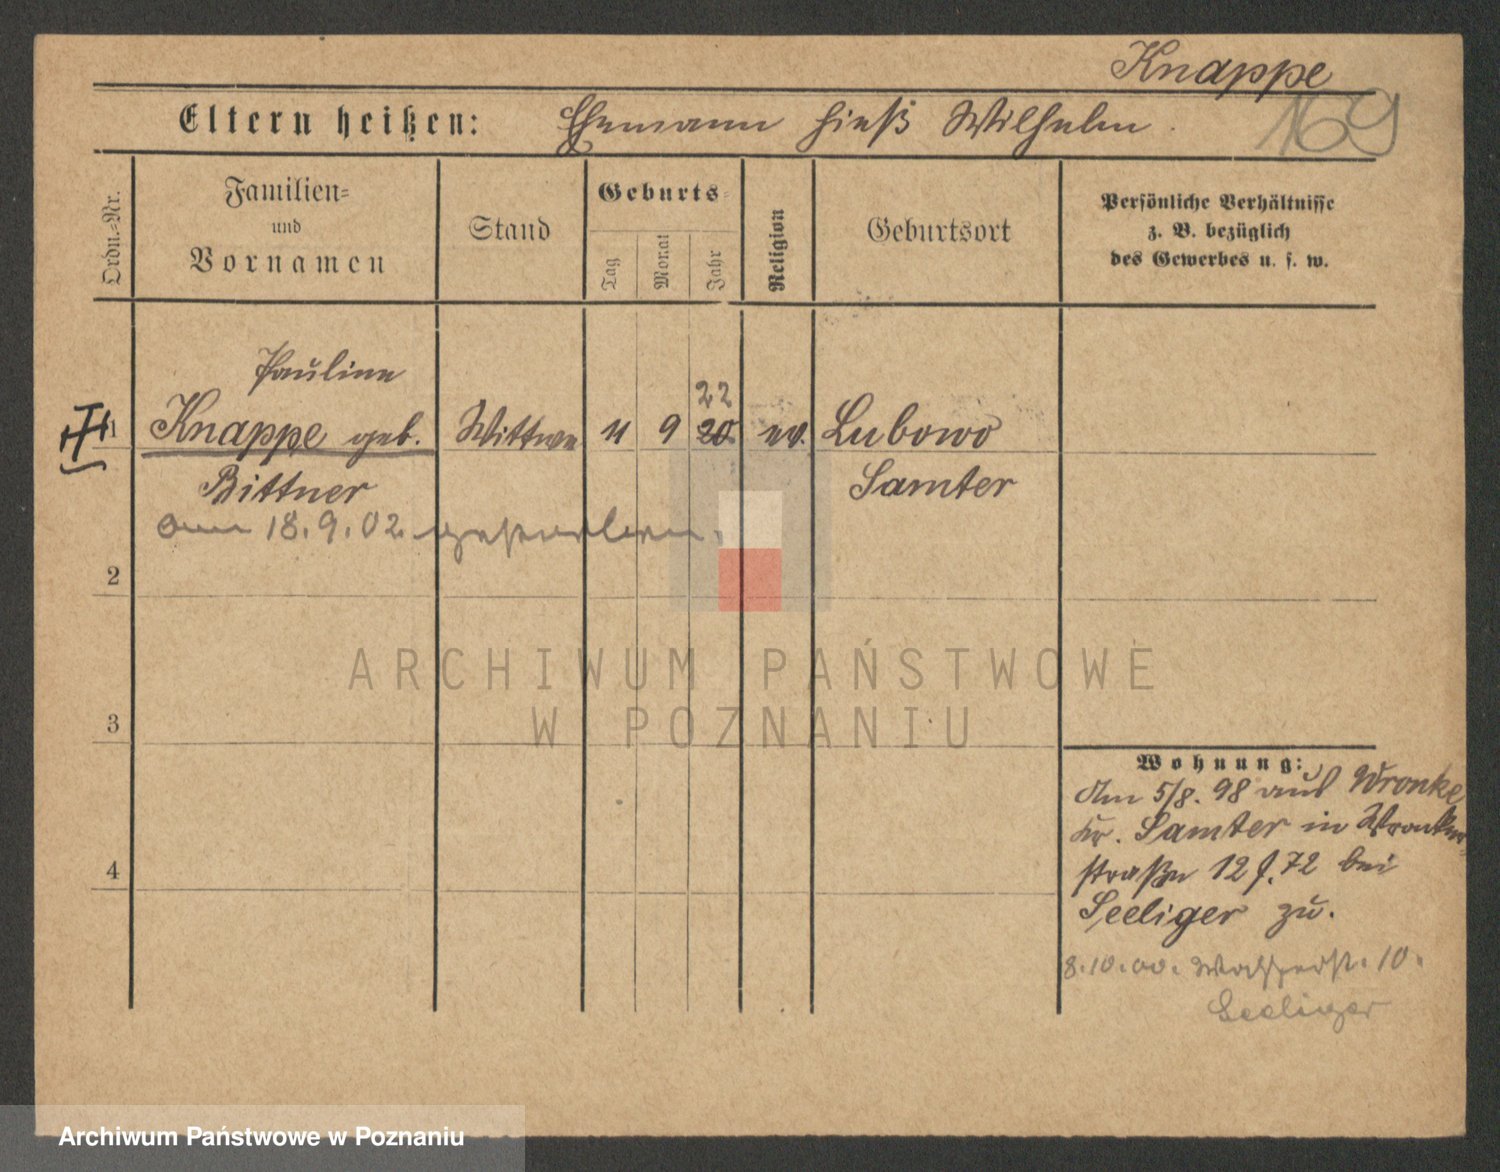 Knappe
Eltern heißen: Ehemann hieß Wilhelm.
169
Ordn.-Nr.
Familien-
und
Vornamen
Stand
Geburts-
Tag
Monat
Jahr
Religion
Geburtsort
Persönliche Verhältnisse
z. B. bezüglich
des Gewerbes u. s. w.
Pauline
22
1 Knappe geb. Wittwe 11 9 20 ev. Lubowo
Bittner Samter
am 18.9.02. gestorben.
2
3
4
Wohnung:
Am 5/8. 98 aus Wronke
Kr. Samter in Wronker-
straße 12 J. 72 bei
Seeliger zu.
8.10.00. Wasserst. 10.
Seeliger
ARCHIWUM PAŃSTWOWE
W POZNANIU
Archiwum Państwowe w Poznaniu